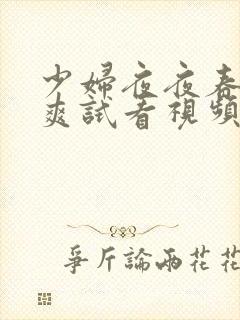 少婦夜夜春
爽試看視頻
爭斤論兩花花